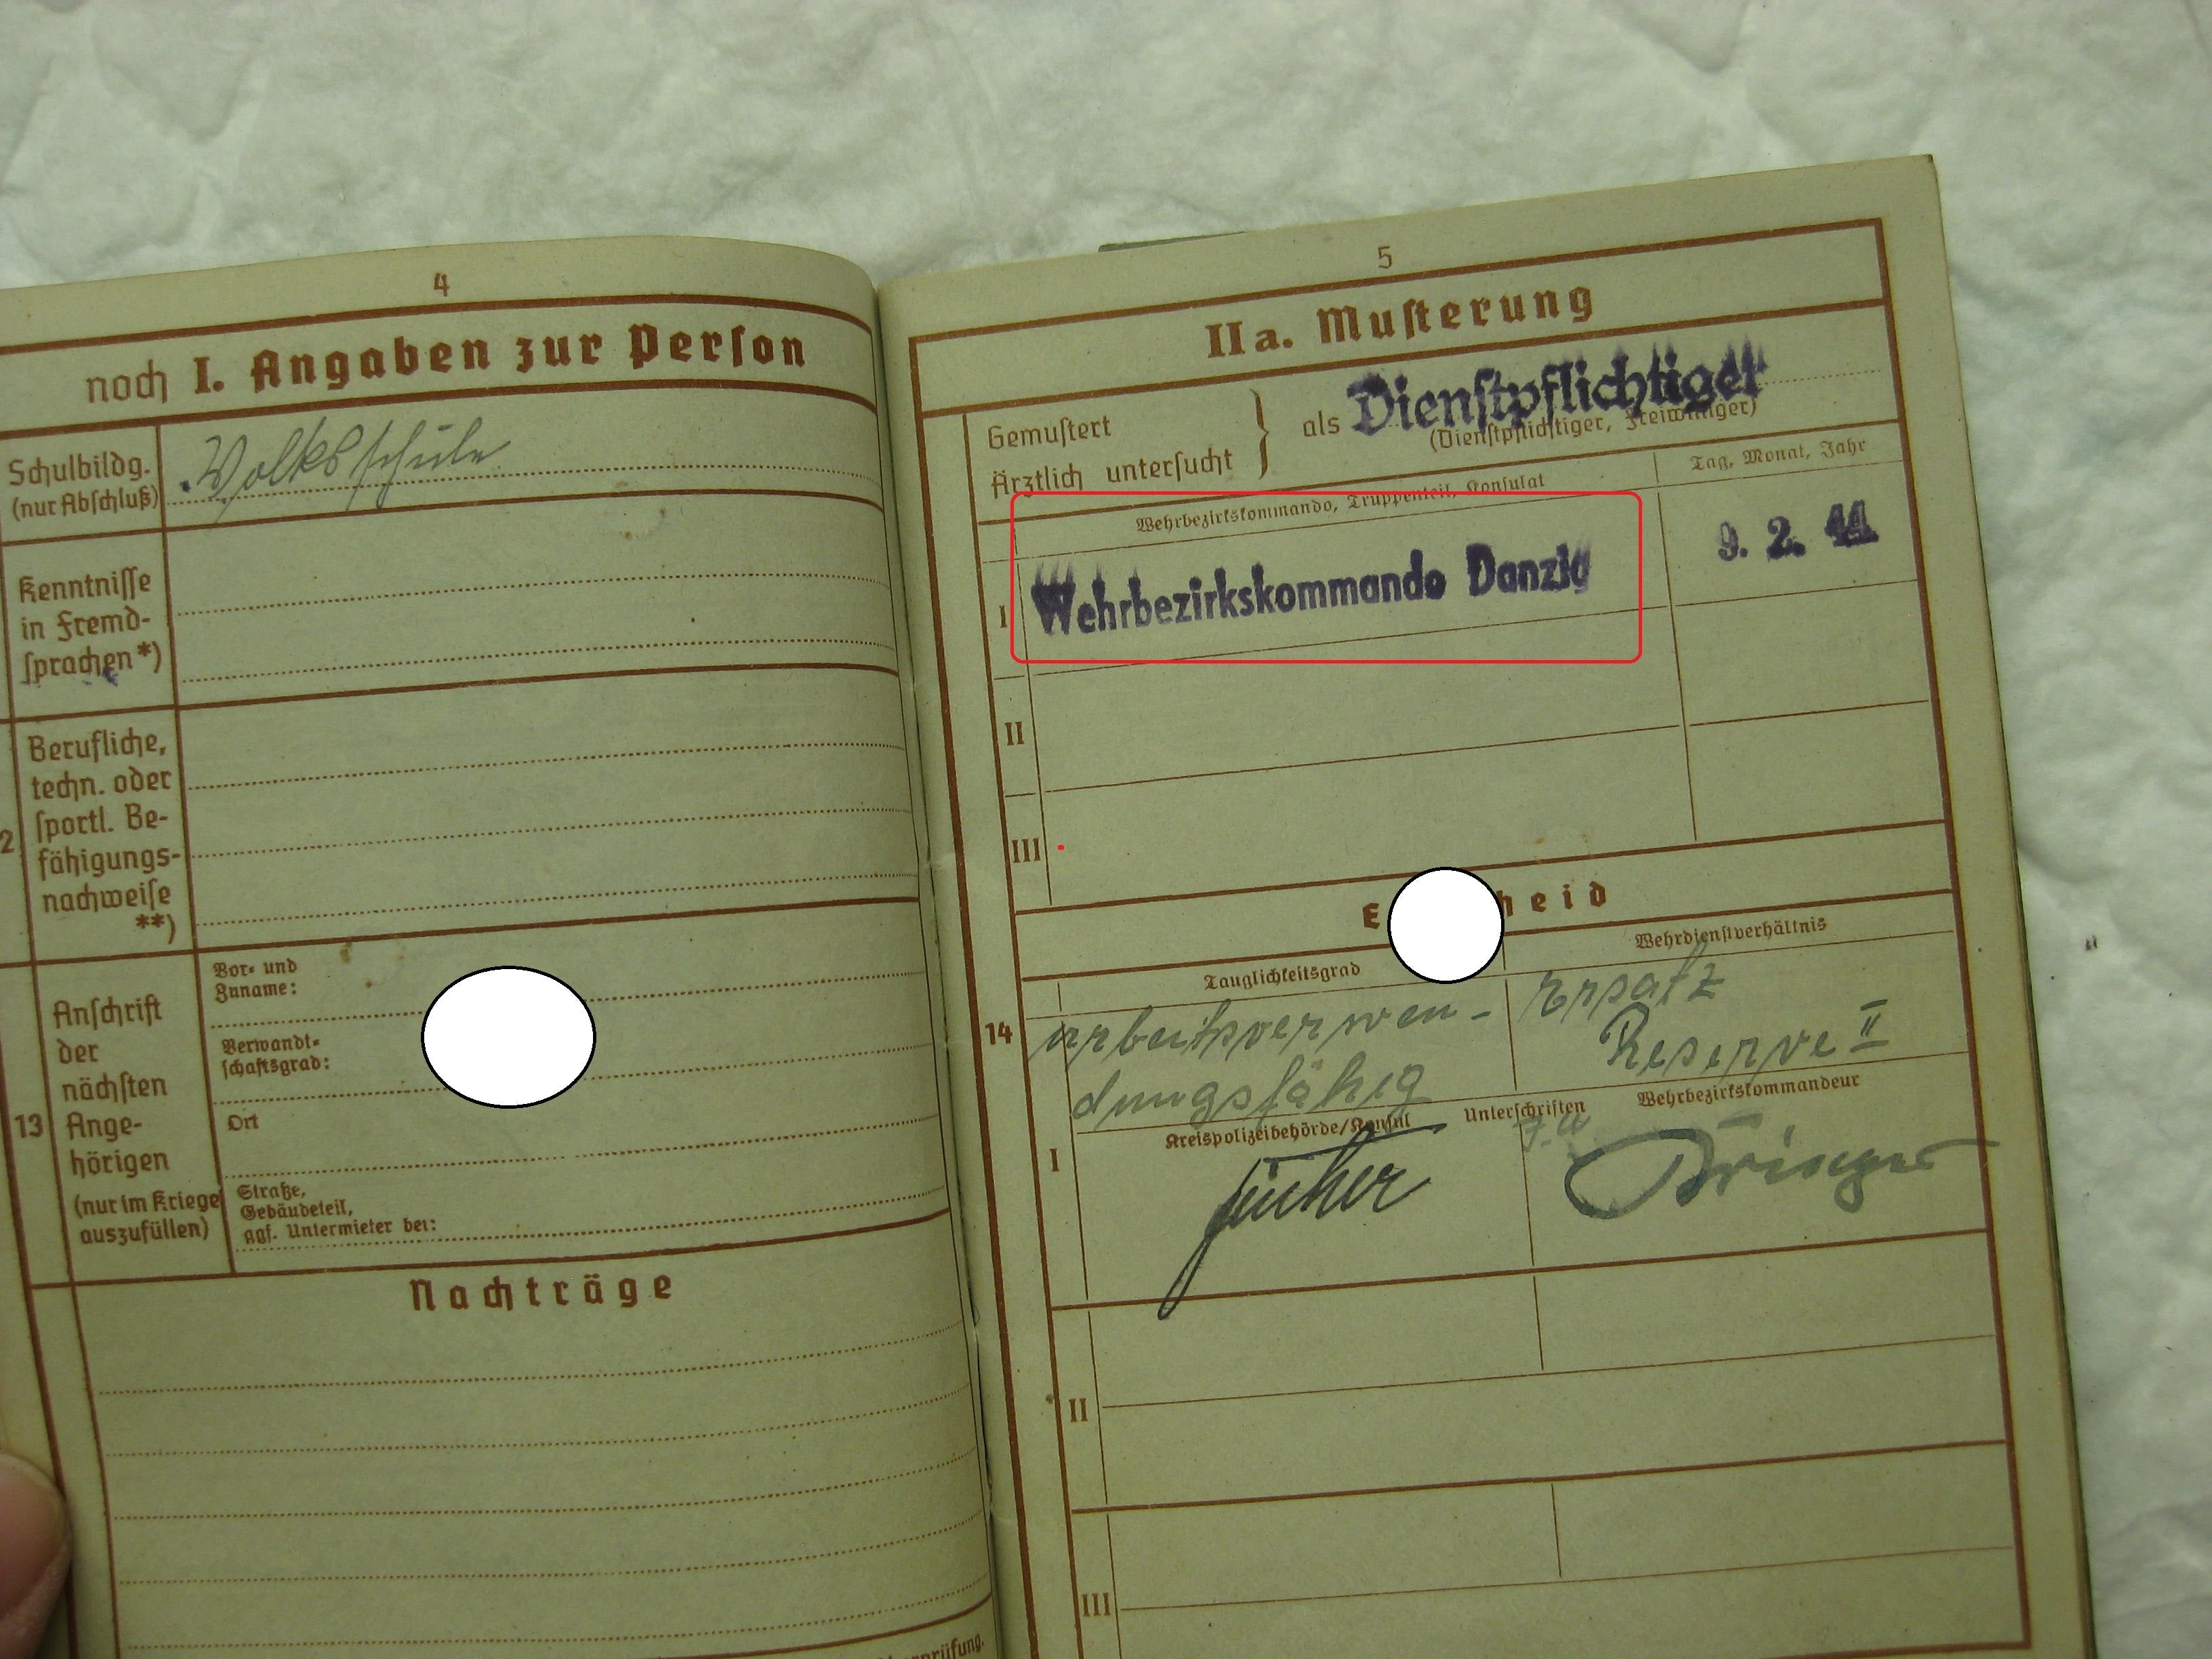 4
noch I. Angaben zur Person
Schulbildg.
(nur Abschluß)
Volksschule
Kenntnisse
in Fremd-
sprachen*)
Berufliche,
techn. oder
sportl. Be-
fähigungs-
nachweise
**)
2
13
Anschrift
der
nächsten
Ange-
hörigen
(nur im Kriege
auszufüllen)
Vor- und
Zuname:
Verwandt-
schaftsgrad:
Ort
Straße,
Gebäudeteil,
ggf. Untermieter bei:
Nachträge
5
IIa. Musterung
Gemustert
Ärztlich untersucht
} als Dienstpflichtiger
(Dienstpflichtiger, Freiwilliger)
Wehrbezirkskommando, Truppenteil, Konsulat
Tag, Monat, Jahr
I Wehrbezirkskommando Danzig
9. 2. 44
II
III
14
Tauglichkeitsgrad
Wehrdienstverhältnis
arbeitsverwen-
dungsfähig
Ersatz
Reserve II
Kreispolizeibehörde/Konsul
Unterschriften
Wehrbezirkskommandeur
I
II
III